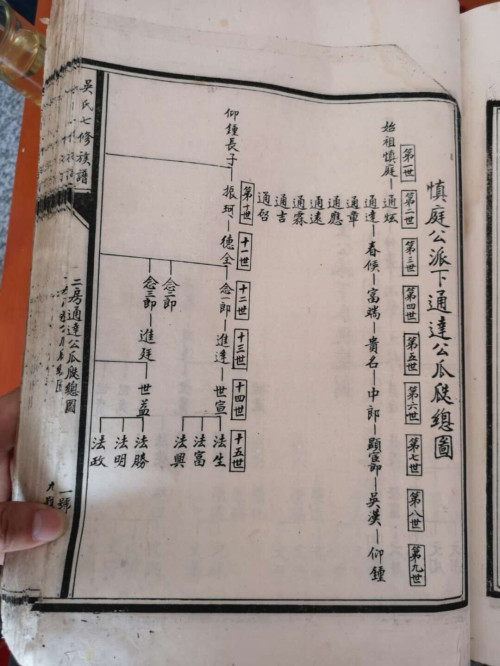 慎庭公派下通達公瓜瓞總圖
第一世 第二世 第三世 第四世 第五世 第六世 第七世 第八世 第九世
始祖慎庭 通炫
通達 春候 富端 貴名 中郎 吳漢 仰鍾
通章
通應
通遠
通霖
通吉
通啓
第十世 十一世 十二世 十三世 十四世 十五世
仰鍾長子 振珂 德全 念一郎 進達 世宣 法生
法富
法興
念二郎
念三郎 進廷 世益 法勝
法明
法政
吳氏七修族譜
二房通達公瓜瓞總圖
一號